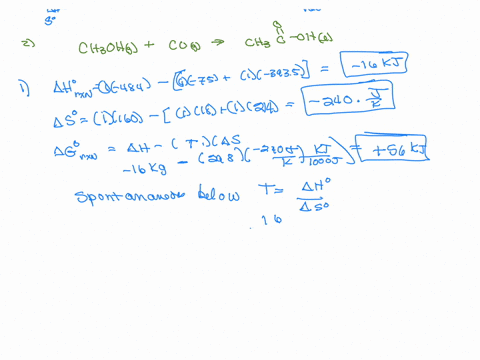 S°
2) CH3OH(g) + CO(g) → CH3 C -OH(l)
O
1) ΔH°rxn = (1)(-484) - [(1)(-75) + (1)(-393.5)] = -16 KJ
ΔS° = (1)(160) - [(1)(186) + (1)(214)] = -240 · J/K
ΔG°rxn = ΔH - (T)(ΔS
-16 Kg - (298)(-240 J/K) KJ/1000J) = +56 KJ
Spontaneous below T = ΔH°/ΔS°
16